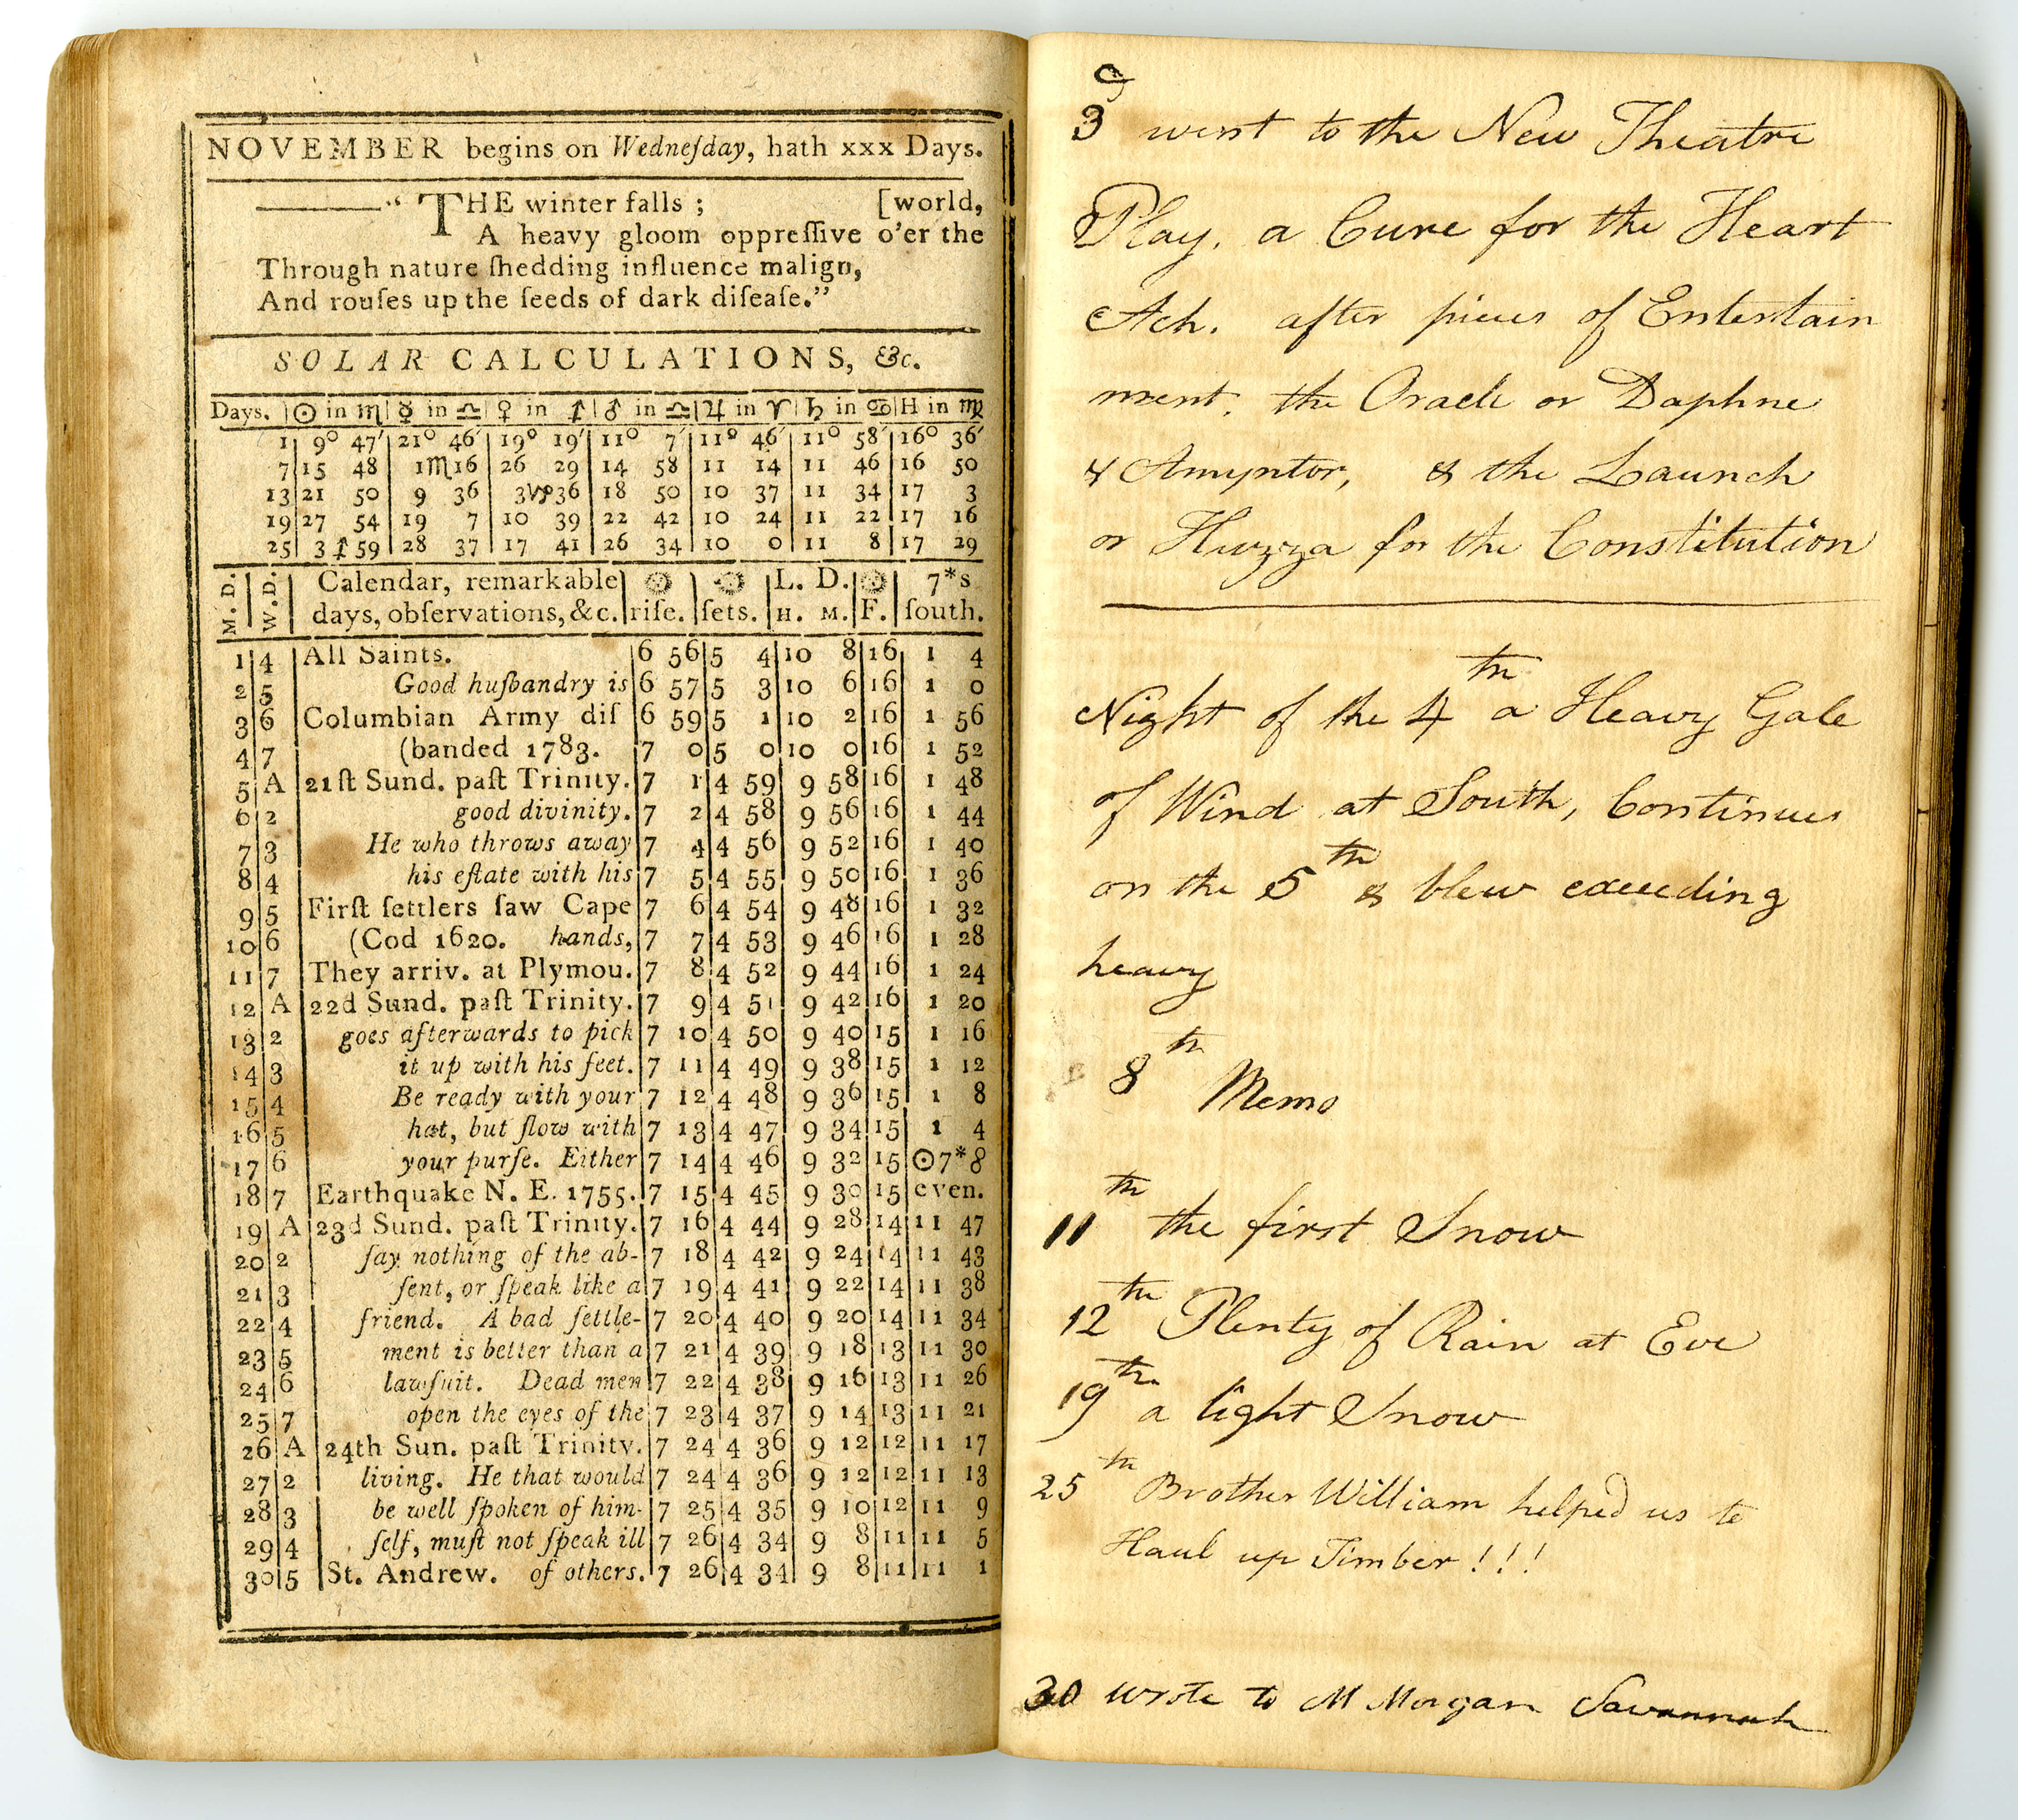 NOVEMBER begins on Wedneſday, hath xxx Days.
———" THE winter falls ; [world,
A heavy gloom oppreſſive o'er the
Through nature ſhedding influence malign,
And rouſes up the ſeeds of dark diſeaſe."
SOLAR CALCULATIONS, &c.
Days. | ☉ in ♏ | ☿ in ♎ | ♀ in ♐ | ♂ in ♎ | ♃ in ♈ | ♄ in ♋ | H in ♍
1 | 9° 47′ | 21° 46′ | 19° 19′ | 11° 7′ | 11° 46′ | 11° 58′ | 16° 36′
7 | 15 48 | 1♏16 | 26 29 | 14 58 | 11 14 | 11 46 | 16 50
13 | 21 50 | 9 36 | 3♑36 | 18 50 | 10 37 | 11 34 | 17 3
19 | 27 54 | 19 7 | 10 39 | 22 42 | 10 24 | 11 22 | 17 16
25 | 3♐59 | 28 37 | 17 41 | 26 34 | 10 0 | 11 8 | 17 29
M. D. | W. D. | Calendar, remarkable | ☉ | ☉ | L. D. | ☉ | 7*s
days, obſervations, &c. | riſe. | ſets. | H. M. | F. | ſouth.
1 | 4 | All Saints. | 6 56 | 5 4 | 10 8 | 16 | 1 4
2 | 5 | Good huſbandry is | 6 57 | 5 3 | 10 6 | 16 | 1 0
3 | 6 | Columbian Army diſ | 6 59 | 5 1 | 10 2 | 16 | 1 56
4 | 7 | (banded 1783. | 7 0 | 5 0 | 10 0 | 16 | 1 52
5 | A | 21ſt Sund. paſt Trinity. | 7 1 | 4 59 | 9 58 | 16 | 1 48
6 | 2 | good divinity. | 7 2 | 4 58 | 9 56 | 16 | 1 44
7 | 3 | He who throws away | 7 4 | 4 56 | 9 52 | 16 | 1 40
8 | 4 | his eſtate with his | 7 5 | 4 55 | 9 50 | 16 | 1 36
9 | 5 | Firſt ſettlers ſaw Cape | 7 6 | 4 54 | 9 48 | 16 | 1 32
10 | 6 | (Cod 1620. hands, | 7 7 | 4 53 | 9 46 | 16 | 1 28
11 | 7 | They arriv. at Plymou. | 7 8 | 4 52 | 9 44 | 16 | 1 24
12 | A | 22d Sund. paſt Trinity. | 7 9 | 4 51 | 9 42 | 16 | 1 20
13 | 2 | goes afterwards to pick | 7 10 | 4 50 | 9 40 | 15 | 1 16
14 | 3 | it up with his feet. | 7 11 | 4 49 | 9 38 | 15 | 1 12
15 | 4 | Be ready with your | 7 12 | 4 48 | 9 36 | 15 | 1 8
16 | 5 | hat, but ſlow with | 7 13 | 4 47 | 9 34 | 15 | 1 4
17 | 6 | your purſe. Either | 7 14 | 4 46 | 9 32 | 15 | ☉7*8
18 | 7 | Earthquake N. E. 1755. | 7 15 | 4 45 | 9 30 | 15 | even.
19 | A | 23d Sund. paſt Trinity. | 7 16 | 4 44 | 9 28 | 14 | 11 47
20 | 2 | ſay nothing of the ab- | 7 18 | 4 42 | 9 24 | 14 | 11 43
21 | 3 | ſent, or ſpeak like a | 7 19 | 4 41 | 9 22 | 14 | 11 38
22 | 4 | friend. A bad ſettle- | 7 20 | 4 40 | 9 20 | 14 | 11 34
23 | 5 | ment is better than a | 7 21 | 4 39 | 9 18 | 13 | 11 30
24 | 6 | lawſuit. Dead men | 7 22 | 4 38 | 9 16 | 13 | 11 26
25 | 7 | open the eyes of the | 7 23 | 4 37 | 9 14 | 13 | 11 21
26 | A | 24th Sun. paſt Trinity. | 7 24 | 4 36 | 9 12 | 12 | 11 17
27 | 2 | living. He that would | 7 24 | 4 36 | 9 12 | 12 | 11 13
28 | 3 | be well ſpoken of him- | 7 25 | 4 35 | 9 10 | 12 | 11 9
29 | 4 | ſelf, muſt not ſpeak ill | 7 26 | 4 34 | 9 8 | 11 | 11 5
30 | 5 | St. Andrew. of others. | 7 26 | 4 34 | 9 8 | 11 | 11 1
3d went to the New Theatre
Play. a Cure for the Heart
Ach. after pieces of Entertain
ment. the Oracle or Daphne
& Amyntor, & the Launch
or Huzza for the Constitution
Night of the 4th a Heavy Gale
of Wind at South, Continues
on the 5th & blew exceeding
heavy
8th Memo
11th the first Snow
12th Plenty of Rain at Eve
19th a light Snow
25th Brother William helped us to
Haul up Timber ! ! !
30 wrote to M Morgan Savannah